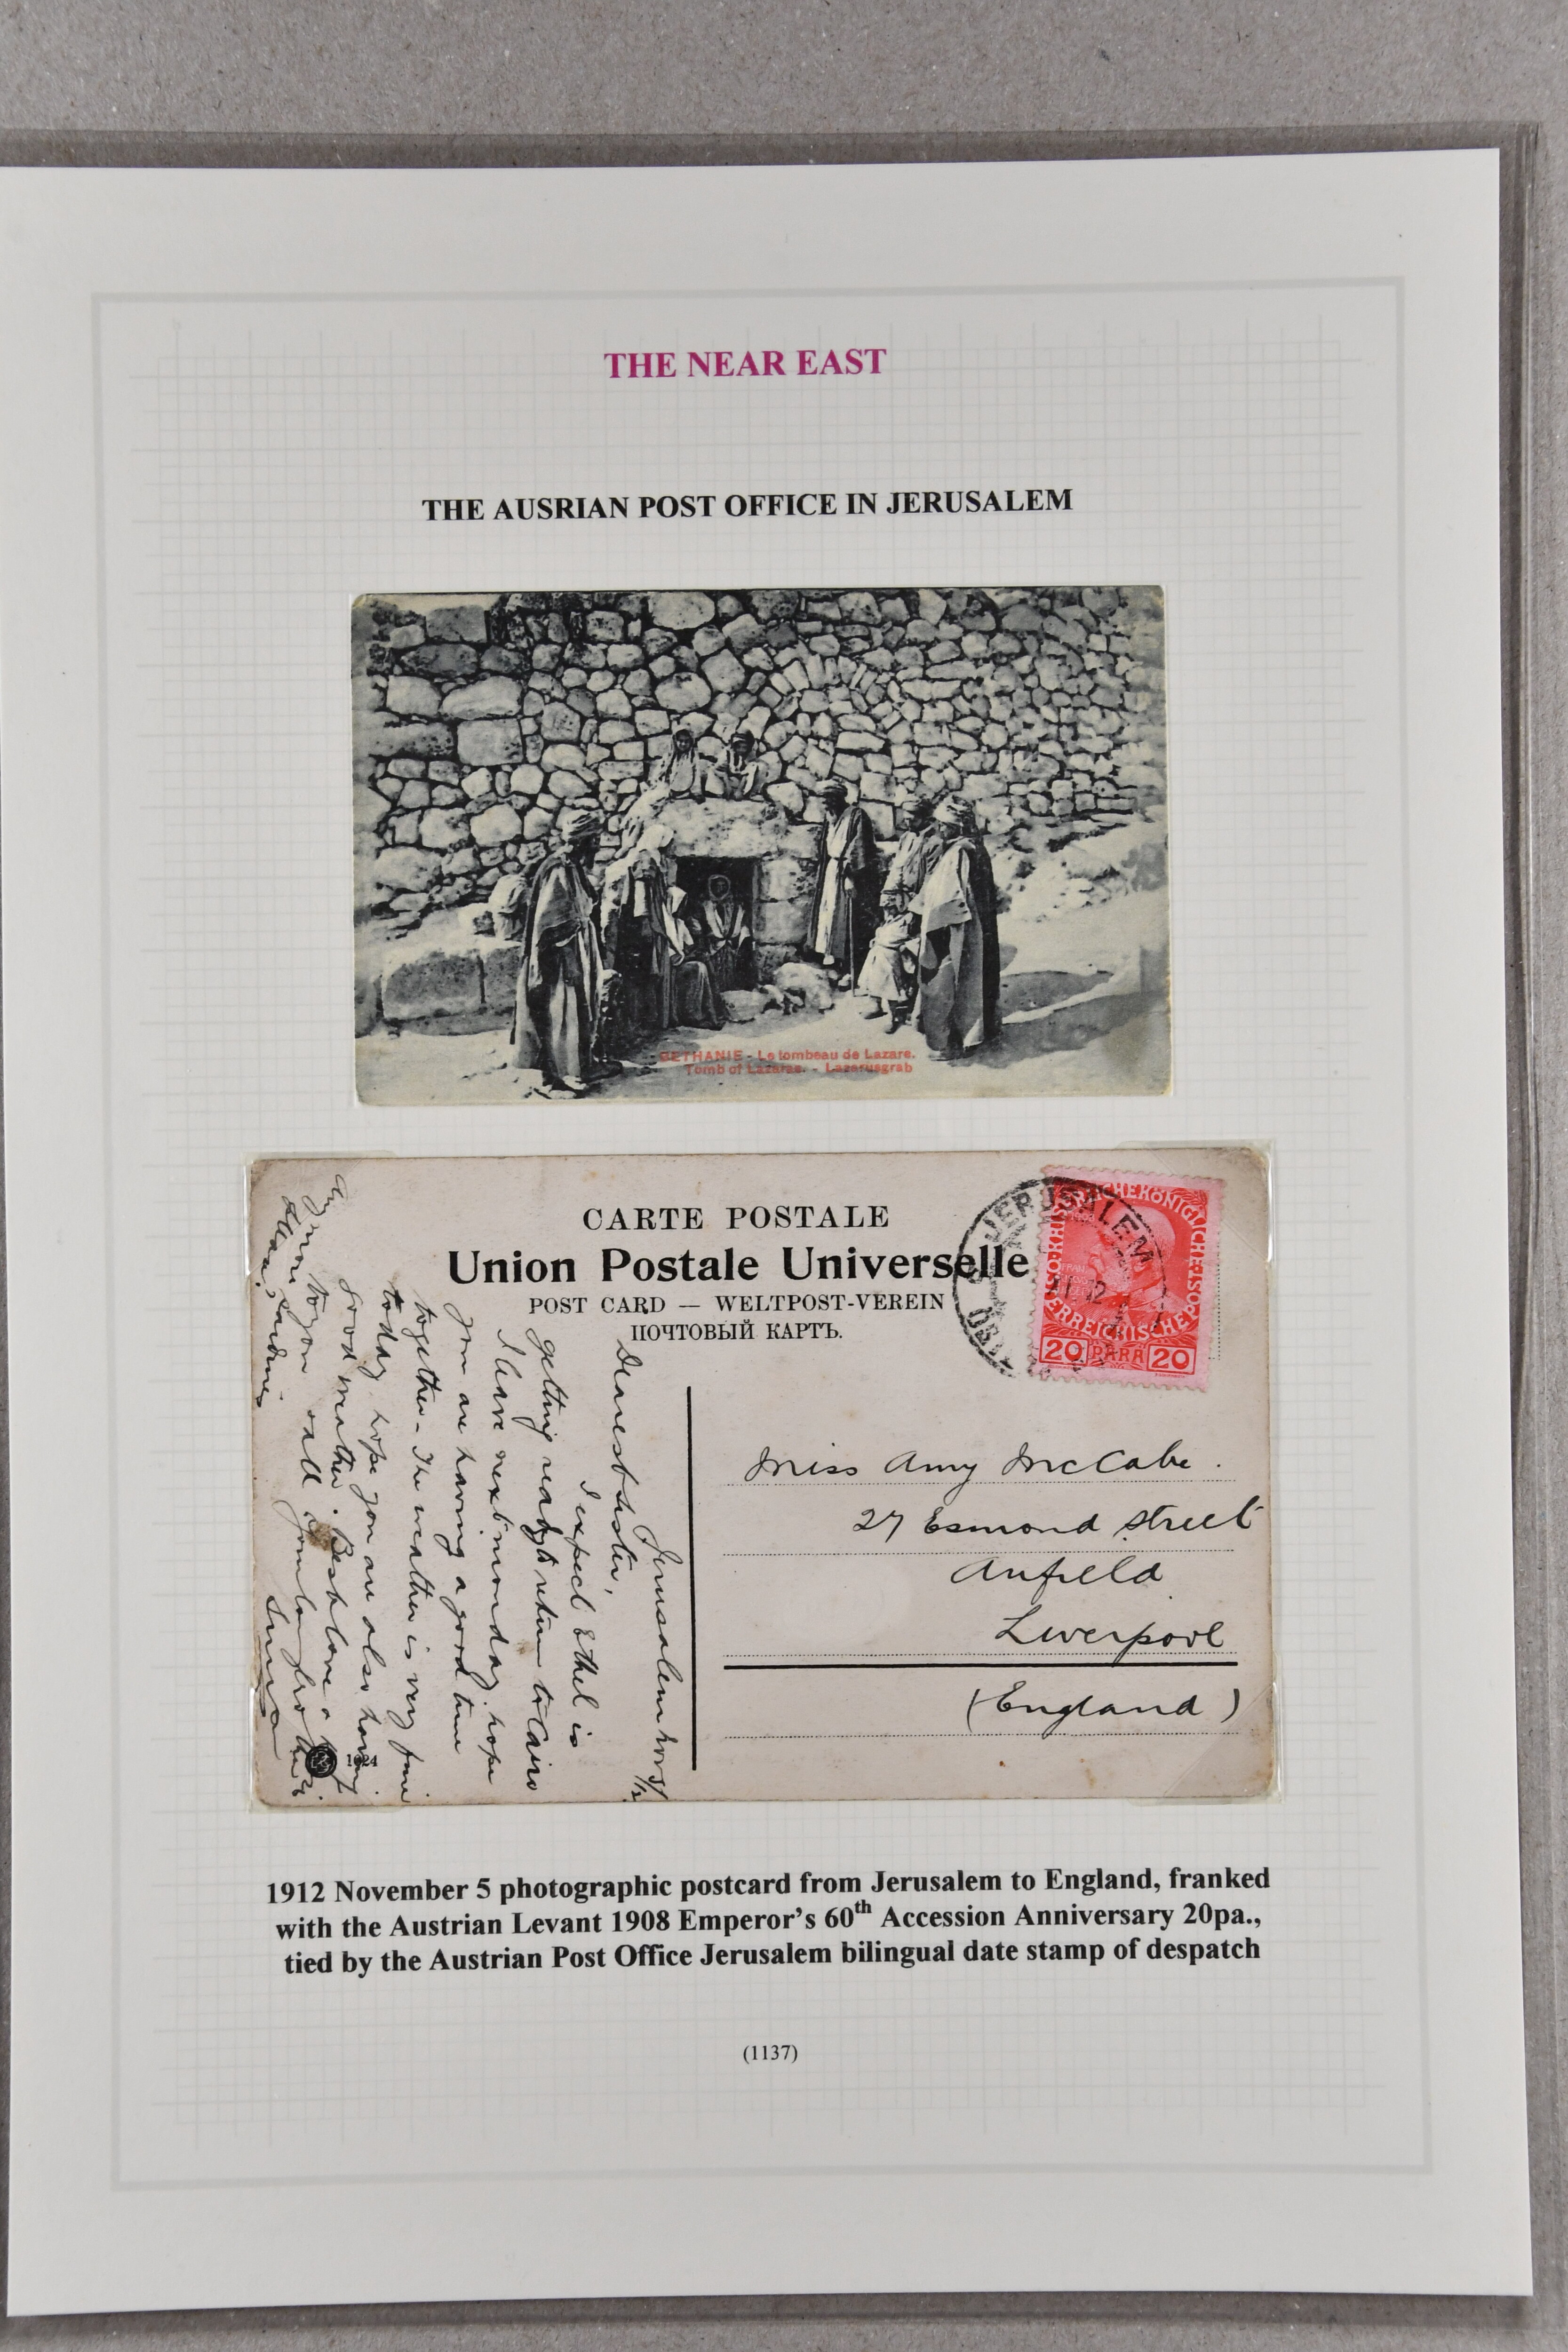 THE NEAR EAST
THE AUSRIAN POST OFFICE IN JERUSALEM
BETHANIE - Le tombeau de Lazare.
Tomb of Lazarus. - Lazarusgrab
CARTE POSTALE
Union Postale Universelle
POST CARD — WELTPOST-VEREIN
ПОЧТОВЫЙ КАРТЪ.
JERUSALEM
20 PARA 20
Miss Amy McCabe.
27 Esmond Street
Anfield
Liverpool
(England)
Jerusalem Nov 5/12
Dearest Sister,
I expect Ethel is
getting ready to return to Cairo
I leave next monday, hope
you are having a good time
together - The weather is very fine
today hope you are also having
good weather. Best love
to you all
1024
1912 November 5 photographic postcard from Jerusalem to England, franked
with the Austrian Levant 1908 Emperor’s 60th Accession Anniversary 20pa.,
tied by the Austrian Post Office Jerusalem bilingual date stamp of despatch
(1137)